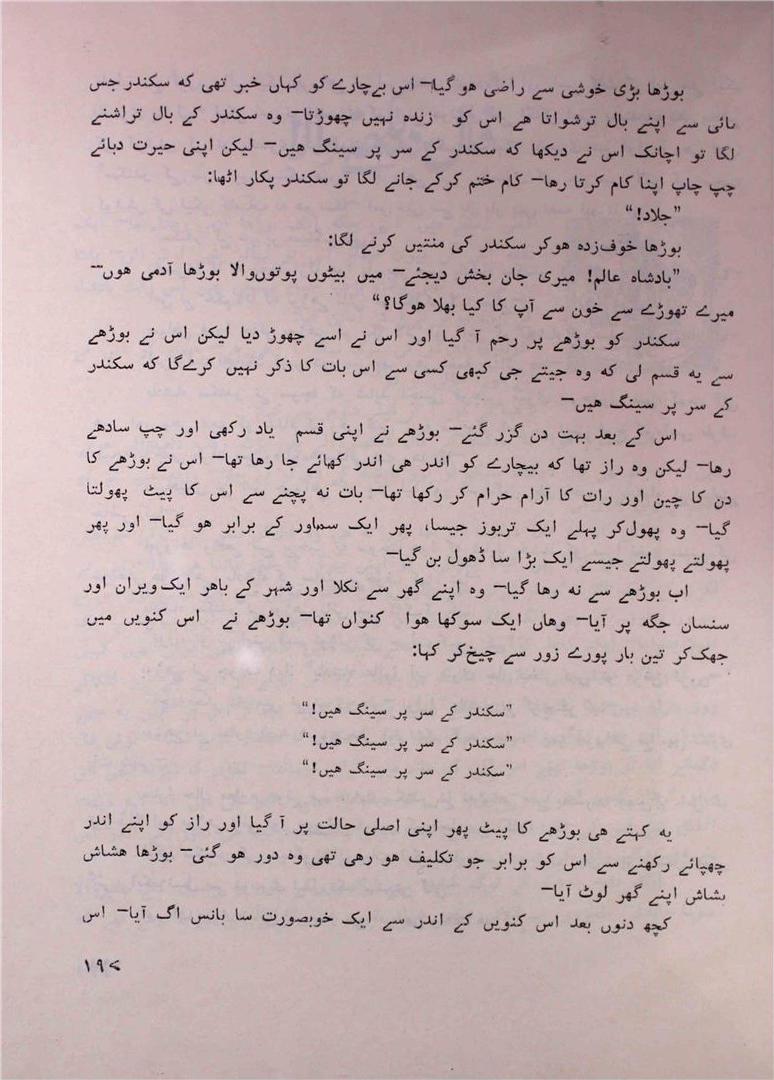 بوڑھا بڑی خوشی سے راضی ھو گیا— اس بےچارے کو کہاں خبر تھی کہ سکندر جس
نائی سے اپنے بال ترشواتا ھے اس کو زندہ نہیں چھوڑتا— وہ سکندر کے بال تراشنے
لگا تو اچانک اس نے دیکھا کہ سکندر کے سر پر سینگ ھیں— لیکن اپنی حیرت دبائے
چپ چاپ اپنا کام کرتا رھا— کام ختم کرکے جانے لگا تو سکندر پکار اٹھا:
”جلاد!“
بوڑھا خوف‌زدہ ھوکر سکندر کی منتیں کرنے لگا:
”بادشاہ عالم! میری جان بخش دیجئے— میں بیٹوں پوتوں‌والا بوڑھا آدمی ھوں—
میرے تھوڑے سے خون سے آپ کا کیا بھلا ھوگا؟“
سکندر کو بوڑھے پر رحم آ گیا اور اس نے اسے چھوڑ دیا لیکن اس نے بوڑھے
سے یہ قسم لی کہ وہ جیتے جی کبھی کسی سے اس بات کا ذکر نہیں کرےگا کہ سکندر
کے سر پر سینگ ھیں—
اس کے بعد بہت دن گزر گئے— بوڑھے نے اپنی قسم یاد رکھی اور چپ سادھے
رھا— لیکن وہ راز تھا کہ بیچارے کو اندر ھی اندر کھائے جا رھا تھا— اس نے بوڑھے کا
دن کا چین اور رات کا آرام حرام کر رکھا تھا— بات نہ پچنے سے اس کا پیٹ پھولتا
گیا— وہ پھول‌کر پہلے ایک تربوز جیسا، پھر ایک سماور کے برابر ھو گیا— اور پھر
پھولتے پھولتے جیسے ایک بڑا سا ڈھول بن گیا—
اب بوڑھے سے نہ رھا گیا— وہ اپنے گھر سے نکلا اور شہر کے باھر ایک ویران اور
سنسان جگہ پر آیا— وھاں ایک سوکھا ھوا کنواں تھا— بوڑھے نے اس کنویں میں
جھک‌کر تین بار پورے زور سے چیخ‌کر کہا:
”سکندر کے سر پر سینگ ھیں!“
”سکندر کے سر پر سینگ ھیں!“
”سکندر کے سر پر سینگ ھیں!“
یہ کہتے ھی بوڑھے کا پیٹ پھر اپنی اصلی حالت پر آ گیا اور راز کو اپنے اندر
چھپائے رکھنے سے اس کو برابر جو تکلیف ھو رھی تھی وہ دور ھو گئی— بوڑھا ھشاش
بشاش اپنے گھر لوٹ آیا—
کچھ دنوں بعد اس کنویں کے اندر سے ایک خوبصورت سا بانس اگ آیا— اس
۱۹۷